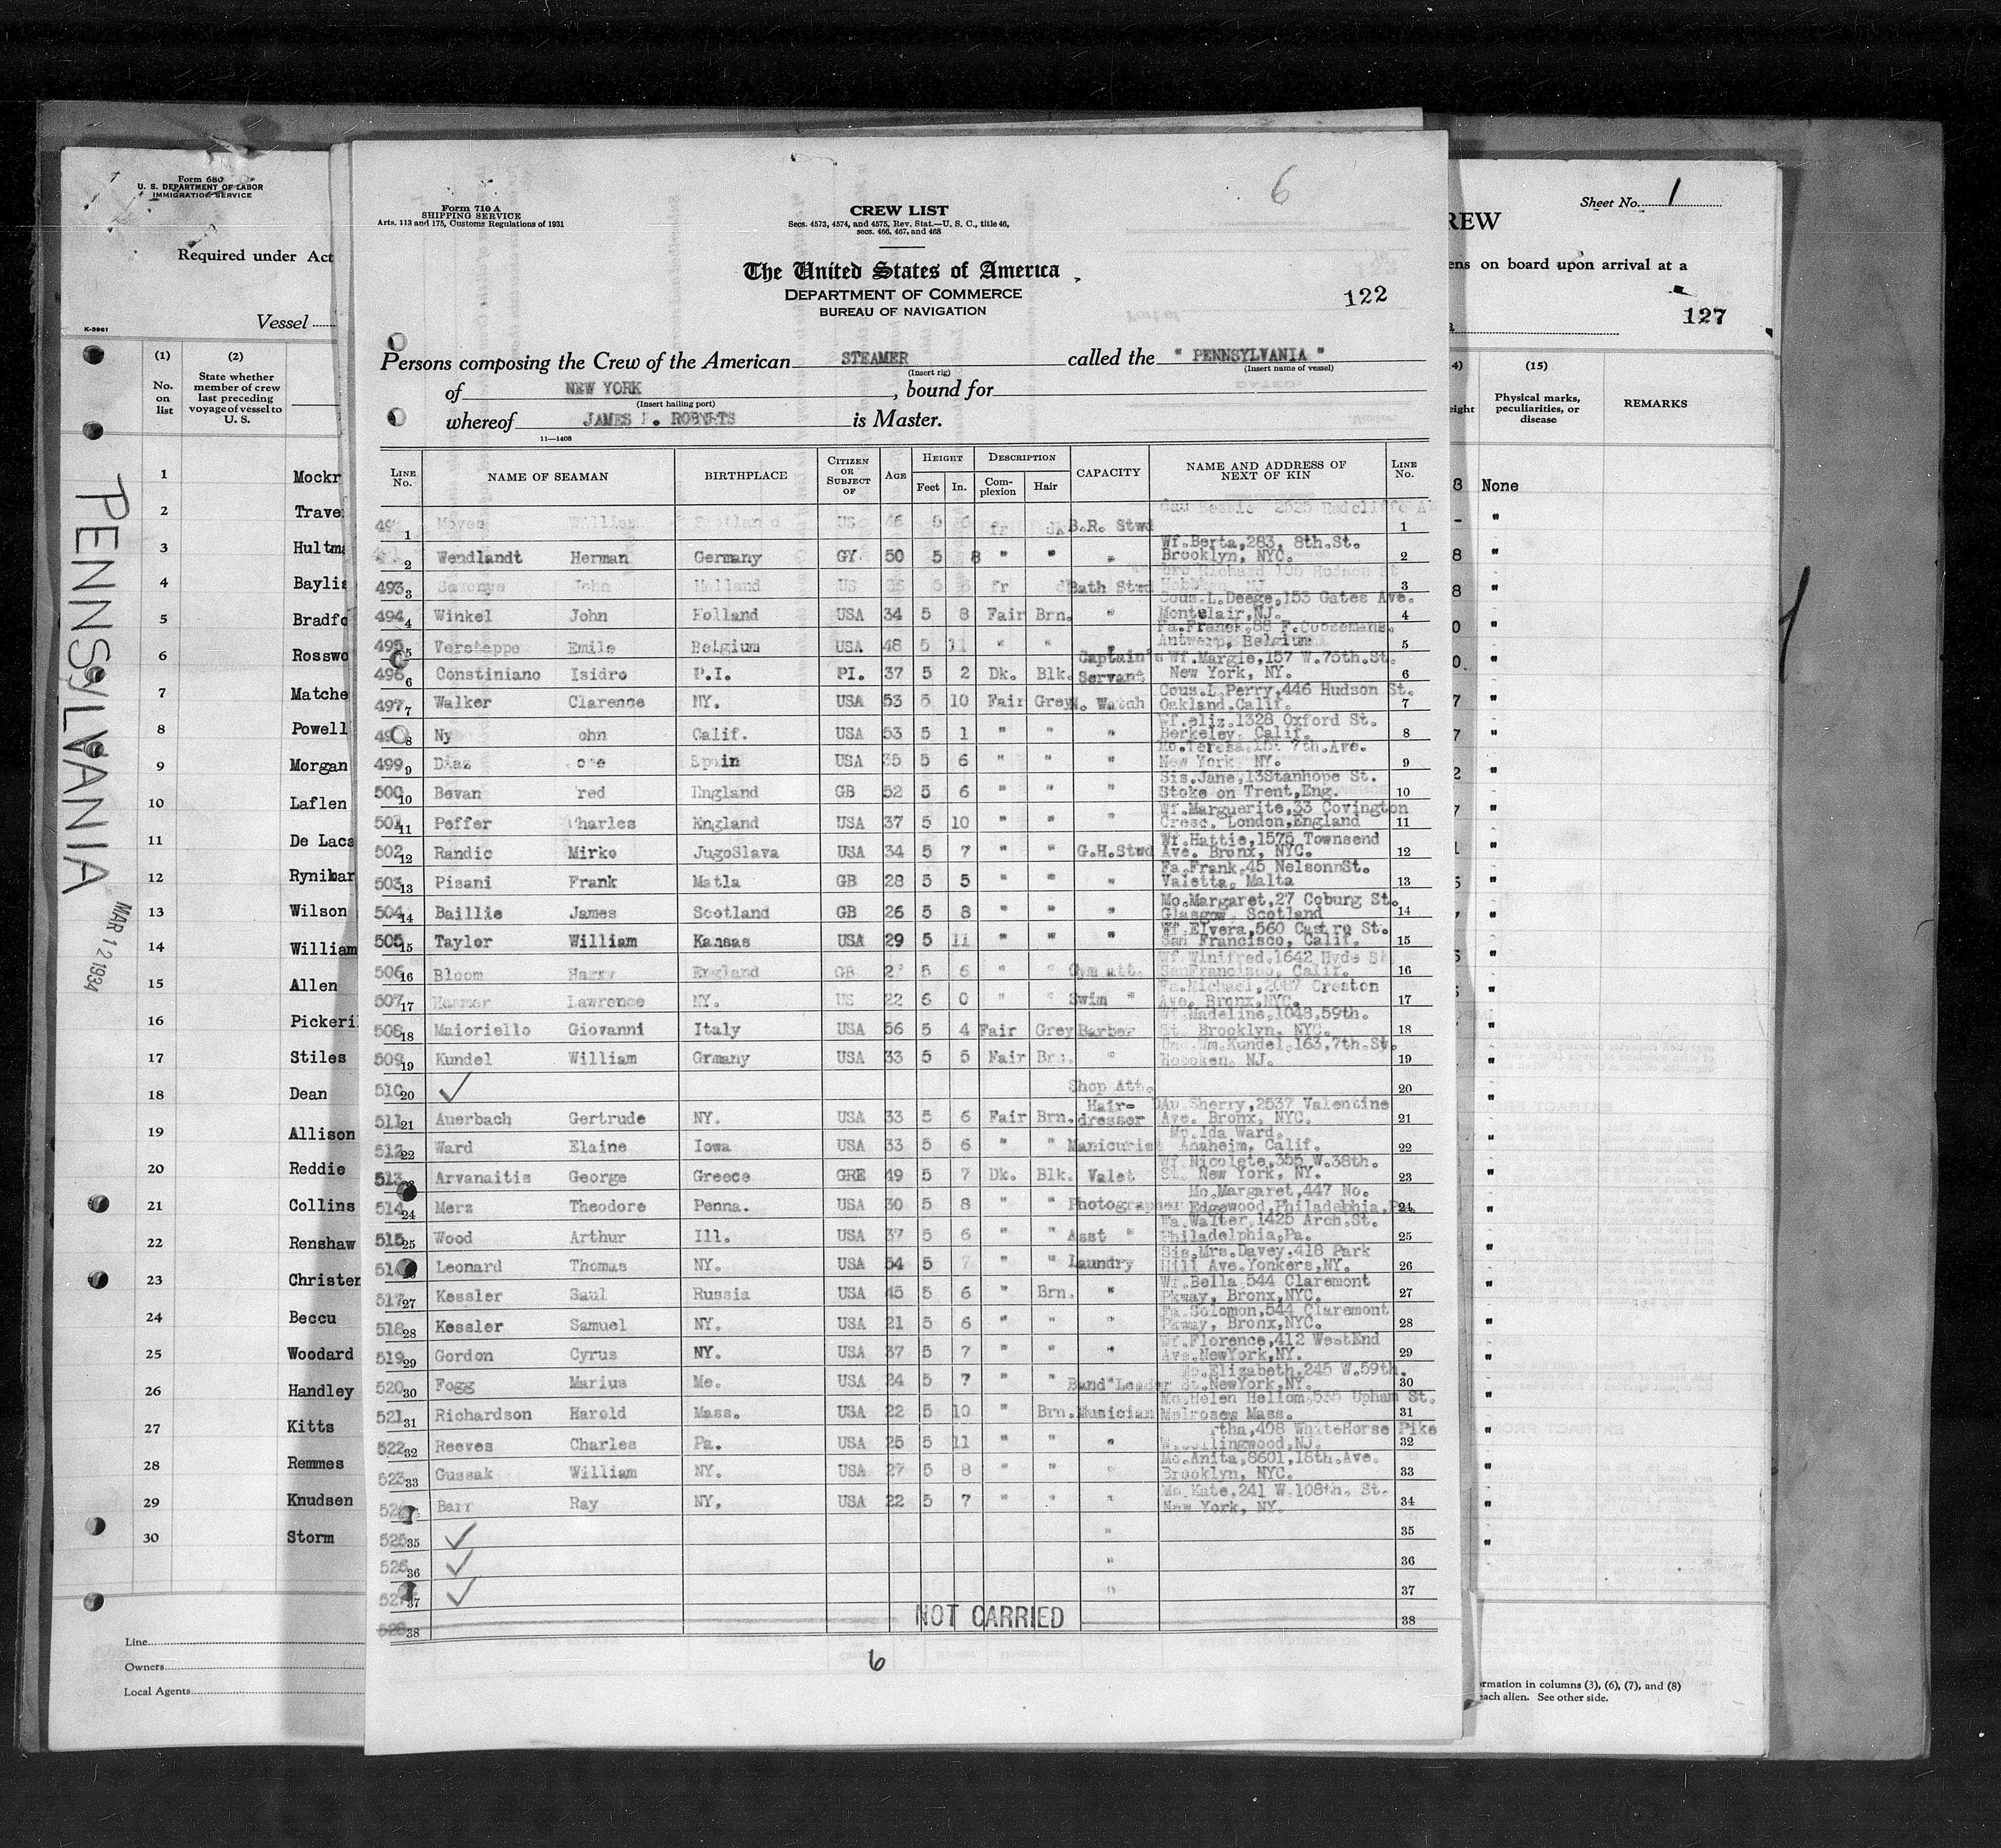 Form 680
U. S. DEPARTMENT OF LABOR
IMMIGRATION SERVICE
Required under Act
Vessel
K-3961
(1) (2)
No. on list
State whether member of crew last preceding voyage of vessel to U. S.
1 Mockr
2 Trave
3 Hultma
4 Baylis
5 Bradfo
6 Rosswo
7 Matche
8 Powell
9 Morgan
10 Laflen
11 De Lacs
12 Rynibar
13 Wilson
14 William
15 Allen
16 Pickeri
17 Stiles
18 Dean
19 Allison
20 Reddie
21 Collins
22 Renshaw
23 Christen
24 Beccu
25 Woodard
26 Handley
27 Kitts
28 Remmes
29 Knudsen
30 Storm
Line
Owners
Local Agents
PENNSYLVANIA
MAR 12 1934
6
Form 710 A
SHIPPING SERVICE
Arts. 113 and 175, Customs Regulations of 1931
CREW LIST
Secs. 4573, 4574, and 4575, Rev. Stat.—U. S. C., title 46,
secs. 466, 467, and 468
The United States of America
DEPARTMENT OF COMMERCE
BUREAU OF NAVIGATION
122
Persons composing the Crew of the American STEAMER called the " PENNSYLVANIA "
(Insert rig) (Insert name of vessel)
of NEW YORK, bound for
(Insert hailing port)
whereof JAMES ROBERTS is Master.
11—1408
LINE No. NAME OF SEAMAN BIRTHPLACE CITIZEN OR SUBJECT OF AGE HEIGHT DESCRIPTION CAPACITY NAME AND ADDRESS OF NEXT OF KIN LINE No.
Feet In. Complexion Hair
1 Moyes William Scotland US 46 5 6 fr dk B.R. Stwd Bessie 2525 Radcliffe 1
2 Wendlandt Herman Germany GY. 50 5 8 " " " Wf.Berta,283, 8th.St. Brooklyn, NYC. 2
493 3 John Holland US 5 6 fr Bath Stwd Richard 105 Hudson St 3
494 4 Winkel John Holland USA 34 5 8 Fair Brn. " Cous.L.Deege,153 Gates Ave. Montclair,NJ. 4
495 5 Versteppe Emile Belgium USA 48 5 11 " " " Antwerp, Belgium 5
496 6 Constiniano Isidro P.I. PI. 37 5 2 Dk. Blk. Captain's Servant Wf.Margie,157 W.75th.St. New York, NY. 6
497 7 Walker Clarence NY. USA 53 5 10 Fair Grey N. Watch Cous.L.Perry,446 Hudson St. Oakland.Calif. 7
8 Ny ohn Calif. USA 53 5 1 " " " Wf.eliz.1328 Oxford St. Berkeley, Calif. 8
499 9 Diaz ose Spain USA 35 5 6 " " " Mo.Teresa 7th.Ave. New York, NY. 9
500 10 Bevan red England GB 52 5 6 " " " Sis.Jane,13Stanhope St. Stoke on Trent,Eng. 10
501 11 Peffer Charles England USA 37 5 10 " " " Wf.Marguerite,33 Covington Cresc. London,England 11
502 12 Randic Mirko JugoSlava USA 34 5 7 " " G.H.Stwd Wf.Hattie,1575 Townsend Ave. Bronx, NYC. 12
503 13 Pisani Frank Matla GB 28 5 5 " " " Fa.Frank,45 NelsonnSt. Valetta, Malta 13
504 14 Baillie James Scotland GB 26 5 8 " " " Mo.Margaret,27 Coburg St. Glasgow, Scotland 14
505 15 Taylor William Kansas USA 29 5 11 " " " Wf.Elvera,560 Castro St. San Francisco, Calif. 15
506 16 Bloom Harry England GB 27 5 6 " " Gym att. Wf.Winifred,1642 Hyde St SanFrancisco, Calif. 16
507 17 Lawrence NY. US 22 6 0 " " Swim " Fa.Michael,2087 Creston Ave. Bronx,NYC. 17
508 18 Maioriello Giovanni Italy USA 56 5 4 Fair Grey Barber Wf.Madeline,1048,59th. St. Brooklyn. NYC. 18
509 19 Kundel William Grmany USA 33 5 5 Fair Brn. " Wm.Kundel,163,7th.St. Hoboken. NJ. 19
510 20 ✓ Shop Att. 20
511 21 Auerbach Gertrude NY. USA 33 5 6 Fair Brn. Hair-dresser Sherry,2537 Valentine Ave. Bronx, NYC. 21
512 22 Ward Elaine Iowa USA 33 5 6 " " Manicurist Mo.Ida Ward. Anaheim, Calif. 22
513 Arvanaitis George Greece GRE 49 5 7 Dk. Blk. Valet Wf.Nicolete,355 W.38th. St. New York, NY. 23
514 24 Merz Theodore Penna. USA 30 5 8 " " Photographer Mo.Margaret,447 No. Edgewood,Philadelphia,Pa. 24
515 25 Wood Arthur Ill. USA 37 5 6 " " Asst " Fa.Walter,1425 Arch.St. Philadelphia,Pa. 25
Leonard Thomas NY. USA 54 5 7 " " Laundry Sis.Mrs.Davey,418 Park Hill Ave.Yonkers,NY. 26
517 27 Kessler Saul Russia USA 45 5 6 " Brn. " Wf.Bella 544 Claremont Pkway, Bronx,NYC. 27
518 28 Kessler Samuel NY. USA 21 5 6 " " " Fa.Solomon,544 Claremont Pkway, Bronx,NYC. 28
519 29 Gordon Cyrus NY. USA 37 5 7 " " " Wf.Florence,412 WestEnd Ave.NewYork,NY. 29
520 30 Fogg Marius Me. USA 24 5 7 " " Band Leader Mo.Elizabeth,245 W.59th. St.NewYork,NY. 30
521 31 Richardson Harold Mass. USA 22 5 10 " Brn. Musician Mo.Helen Hellom,535 Upham St. Melrosem Mass. 31
522 32 Reeves Charles Pa. USA 25 5 11 " " " rtha,408 WhiteHorse Pike W. llingwood,NJ. 32
523 33 Gussak William NY. USA 27 5 8 " " " Mo.Anita,8601,18th.Ave. Brooklyn, NYC. 33
Barr Ray NY. USA 22 5 7 " " " Mo.Kate,241 W.108th. St. New York, NY. 34
525 35 ✓ " 35
526 36 ✓ " 36
37 ✓ " 37
528 38 NOT CARRIED 38
6
Sheet No. 1
REW
ens on board upon arrival at a
127
4) (15)
eight Physical marks, peculiarities, or disease REMARKS
8 None